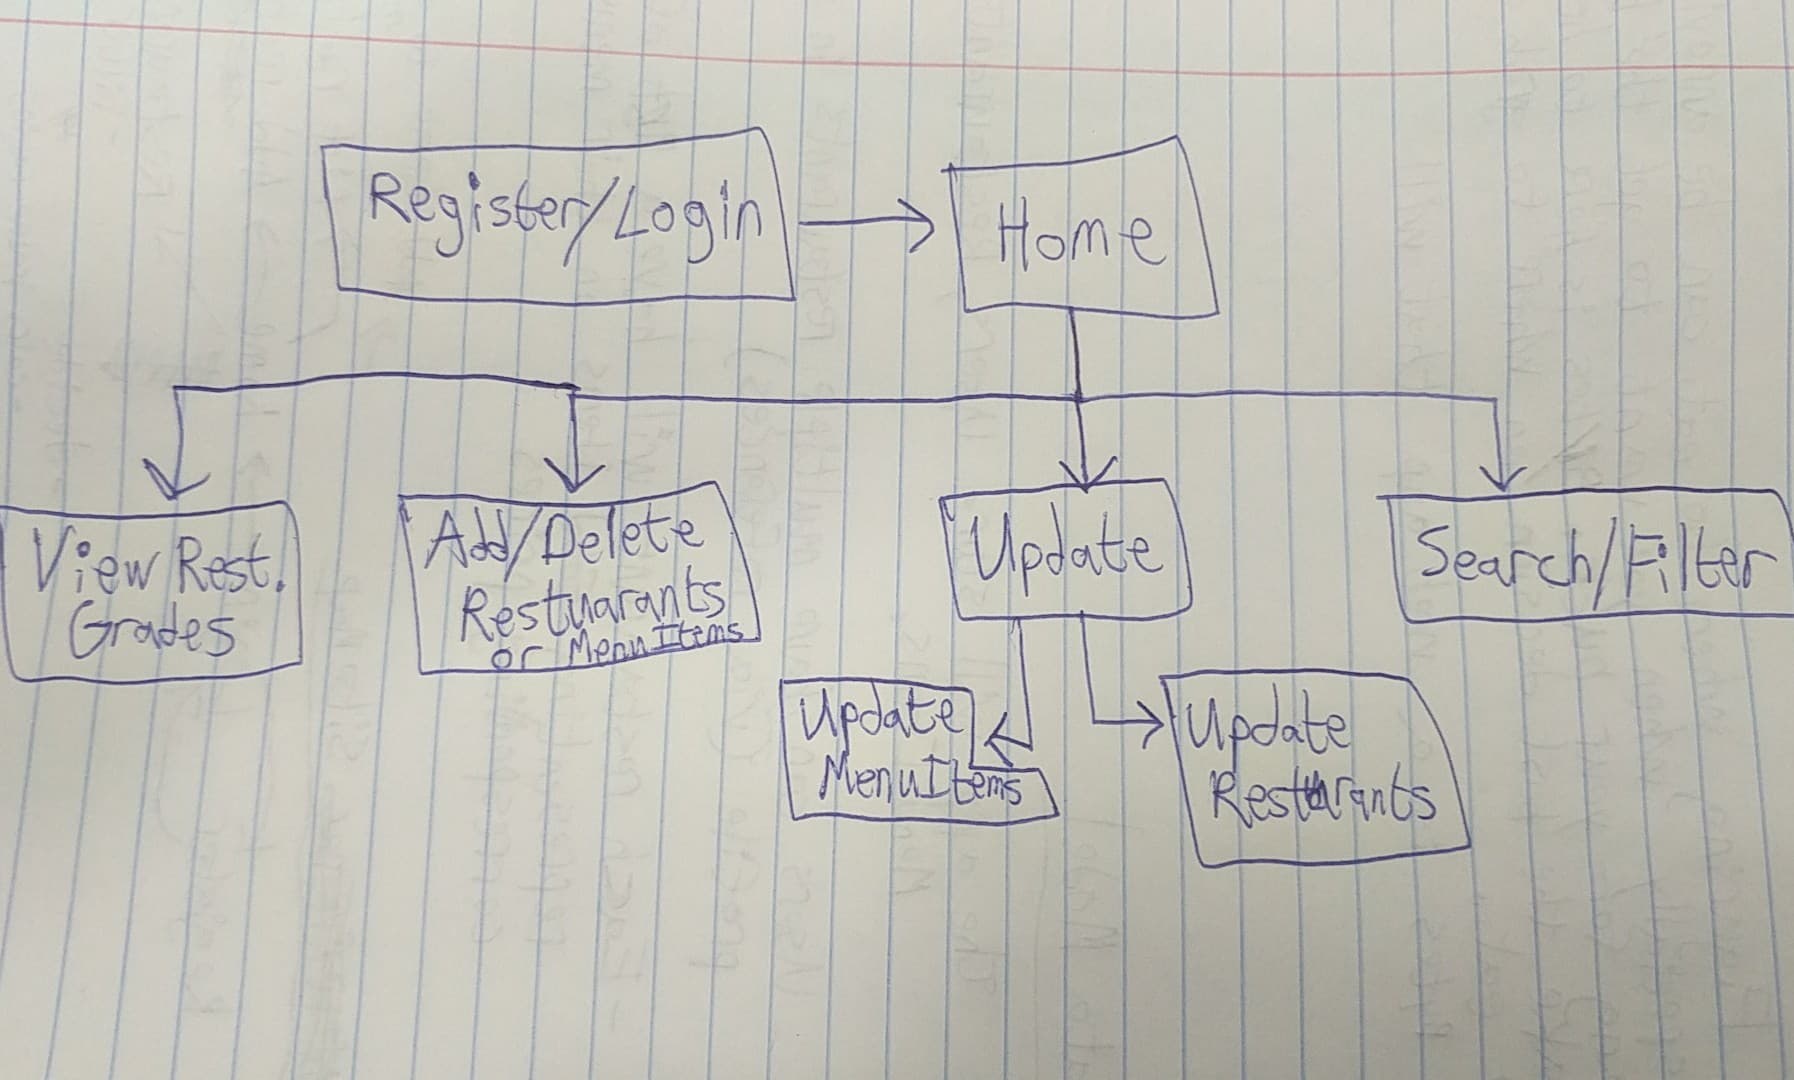 Register/Login
Home
View Rest.
Grades
Add/Delete
Restuarants
or MenuItems
Update
Search/Filter
Update
MenuItems
Update
Resturants